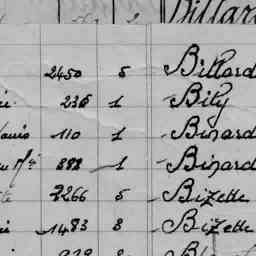 Billard
2450 5 Billard
236 1 Bily
110 1 Binard
882 1 Binard
2266 5 Bizette
1483 8 Bizette